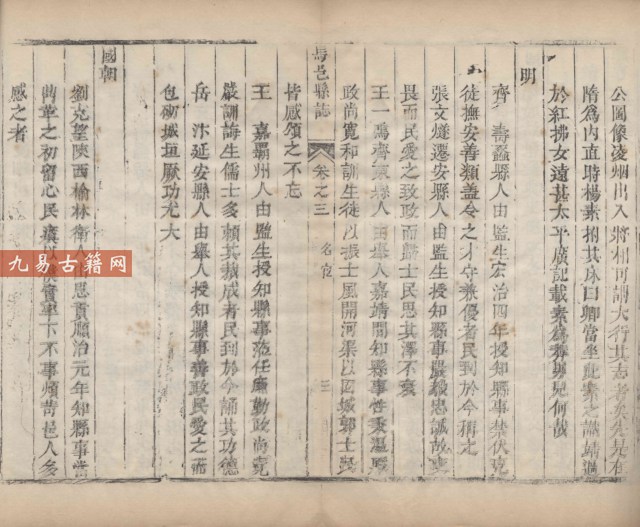 公圖像凌烟出入將相可謂大行其志者矣先是在
隋爲內直時楊素拊其床曰卿當坐此素之識靖過
於紅拂女遠甚太平廣記載素爲
明
齊 壽蠡縣人由監生宏治四年授知縣事禁伏克
徒撫安善類蓋令之才守兼優者民到於今稱之
張文燧遷安縣人由監生授知縣事嚴毅忠誠故
畏而民愛之致政而歸士民思其澤不衰
王一爲齊東縣人由舉人嘉靖間知縣事性秉溫厚
政尚寬和訓生徒以振士風開河渠以固城郭士民
馬邑縣誌
卷之三 名宦 三
皆感頌之不忘
王 嘉霸州人由監生授知縣事蒞任廉勤政尚寬
嚴訓誨生儒士多賴其裁成者民到於今誦其功德
岳 汴延安縣人由舉人授知縣事善政民愛之
包砌城垣厥功尤大
國朝
劉克望陝西榆林衛人 恩貢順治元年知縣事當
鼎革之初留心民瘼 下不事煩苛邑人多
感之者
九易古籍网